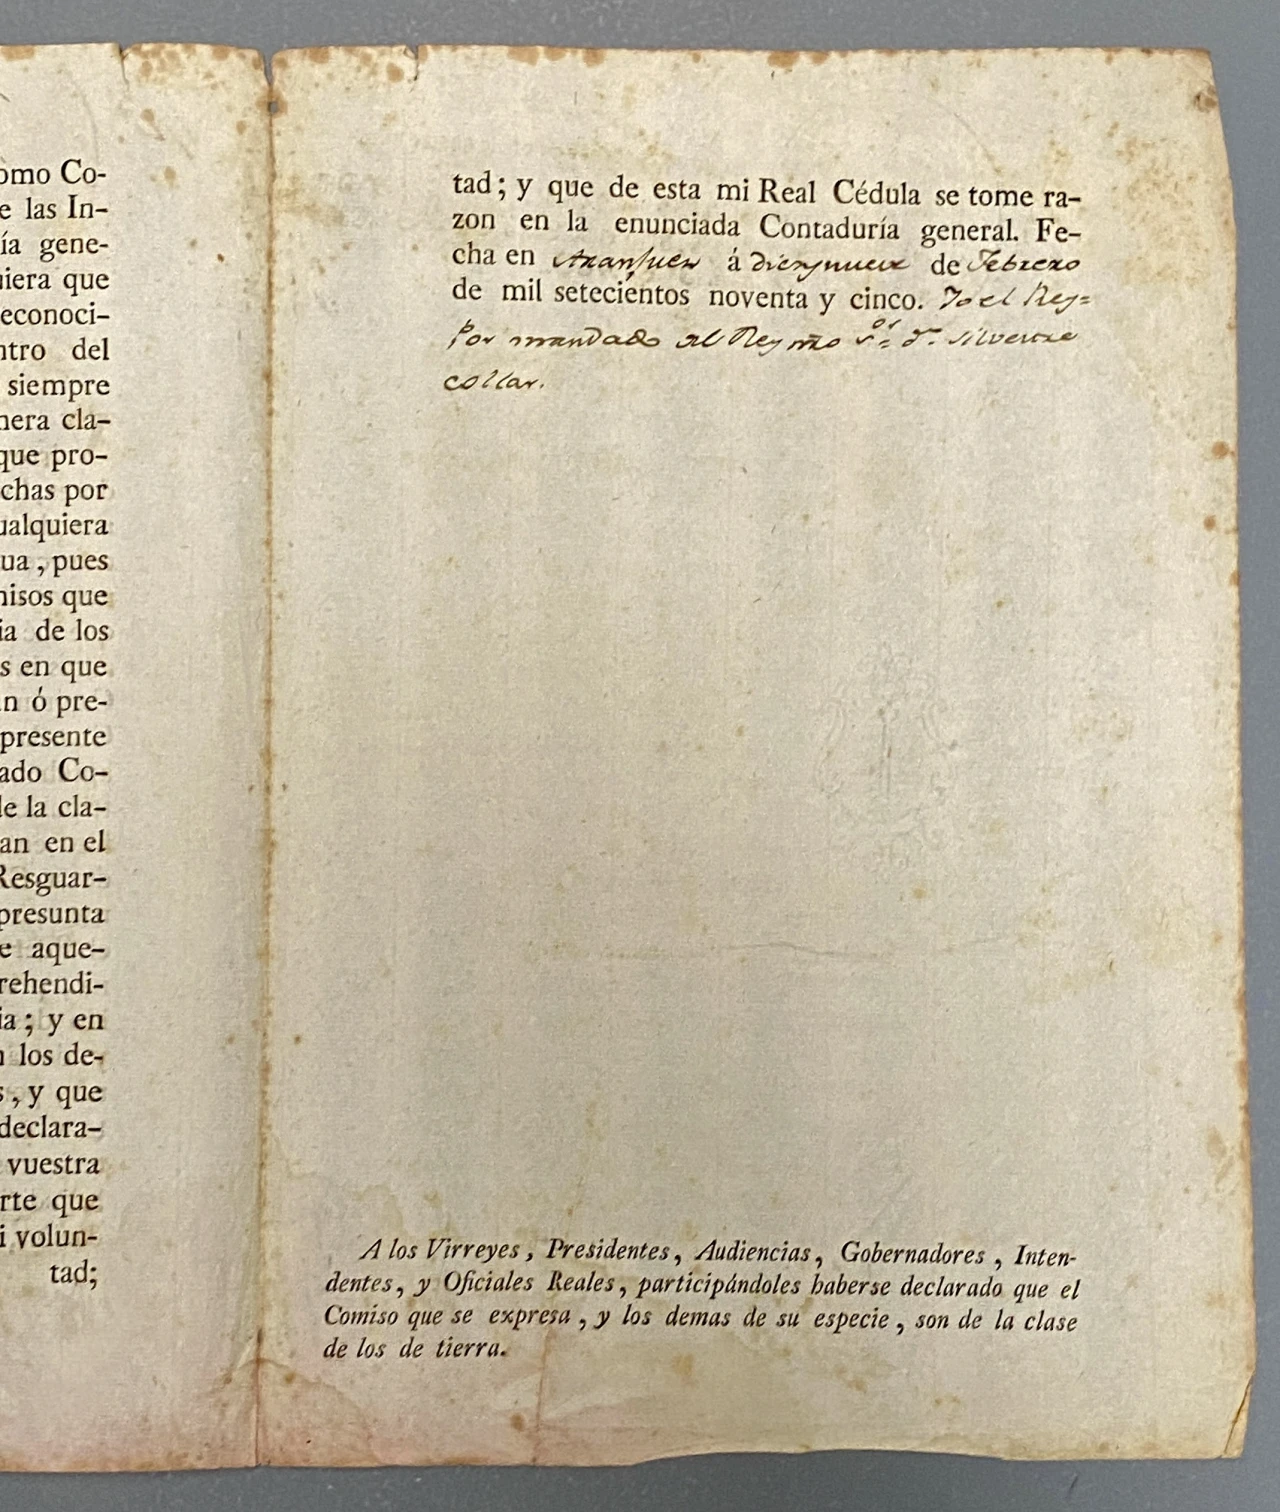 omo Co-
e las In-
ía gene-
uiera que
econoci-
ntro del
siempre
nera cla-
que pro-
chas por
ualquiera
ua, pues
nisos que
ia de los
s en que
n ó pre-
presente
ado Co-
le la cla-
an en el
Resguar-
presunta
e aque-
rehendi-
ia; y en
n los de-
s, y que
declara-
vuestra
rte que
i volun-
tad;
tad; y que de esta mi Real Cédula se tome ra-
zon en la enunciada Contaduría general. Fe-
cha en Aranjuez á diez y nueve de Febrero
de mil setecientos noventa y cinco. Yo el Rey=
Por mandado del Rey nro Sor. dn. Silvestre
collar.
A los Virreyes, Presidentes, Audiencias, Gobernadores, Inten-
dentes, y Oficiales Reales, participándoles haberse declarado que el
Comiso que se expresa, y los demas de su especie, son de la clase
de los de tierra.